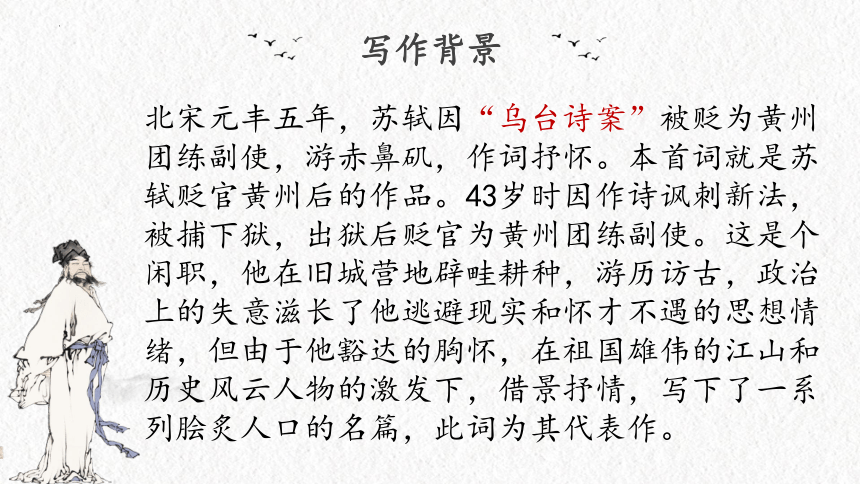 写作背景
北宋元丰五年，苏轼因“乌台诗案”被贬为黄州
团练副使，游赤鼻矶，作词抒怀。本首词就是苏
轼贬官黄州后的作品。43岁时因作诗讽刺新法，
被捕下狱，出狱后贬官为黄州团练副使。这是个
闲职，他在旧城营地辟畦耕种，游历访古，政治
上的失意滋长了他逃避现实和怀才不遇的思想情
绪，但由于他豁达的胸怀，在祖国雄伟的江山和
历史风云人物的激发下，借景抒情，写下了一系
列脍炙人口的名篇，此词为其代表作。